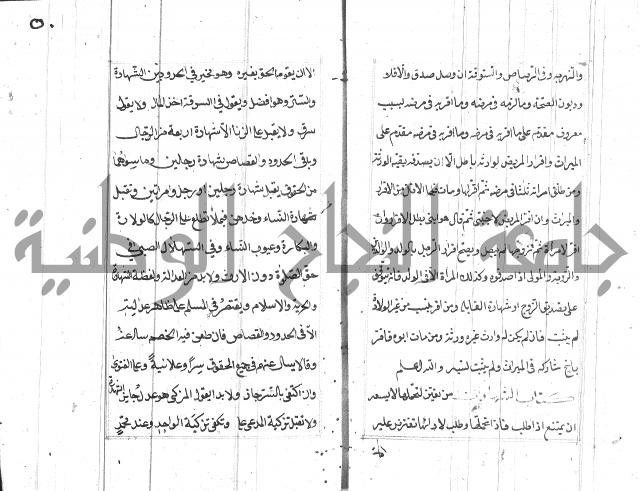 والنبهرجة وفي الرصاص والستوقة ان وصل صدق والا فلا
وديون الصحة وما لزمه في مرضه وما اقر به في مرضه لسبب
معروف مقدم على ما اقر به في مرضه وما اقر به في مرضه مقدم على
الميراث واقرار المريض لوارثه باطل الا ان يصدقه بقية الورثة
ومن طلق امراته ثلثا في مرضه ثم اقر لها ومات فلها الاقل من الاقرار
والميراث وان اقر المريض لاجنبي ثم قال هو ابني بطل اقراره وان
اقر لامراة ثم تزوجها لم يبطل ويصح اقرار الرجل بالولد والوالدين
والزوجة والمولى اذا صدقوه وكذلك المراة الا في الولد فانه يتوقف
على تصديق الزوج او شهادة القابلة ومن اقر بنسب من غير الولادة
لم يثبت فان لم يكن له وارث غيره ورثه ومن مات ابوه فاقر
باخ شاركه في الميراث ولم يثبت نسبه والله اعلم
كتاب الشهادات من تعين لتحملها لا يسعه
ان يمتنع اذا طلب فاذا تحملها وطلب لادائها تفترض عليه
الا
٥٠
الا ان يقوم الحق بغيره وهو مخير في الحدود بين الشهادة
والستر وهو افضل ويقول في السرقة اخذ المال ولا يقول
سرق ولا يقبل على الزنا الا شهادة اربعة من الرجال
وباقي الحدود والقصاص شهادة رجلين وما سواهما
من الحقوق يقبل شهادة رجلين او رجل وامراتين وتقبل
شهادة النساء وحدهن فيما لا يطلع على الرجال كالولادة
والبكارة وعيوب النساء وفي استهلال الصبي في
حق الصلاة دون الارث ولا بد من العدالة ولفظة الشهادة
والحرية والاسلام ويقتصر في المسلم على ظاهر عدالته
الا في الحدود والقصاص فان طعن فيه الخصم سال عنه
وقالا يسال عنهم في جميع الحقوق سرا وعلانية وعليه الفتوى
وان اكتفى بالسر جاز ولا بد ان يقول المزكي هو عدل جايز الشهادة
ولا تقبل تزكية المدعى عليه وتكفي تزكية الواحد وعند محمد
جامعة النجاح الوطنية